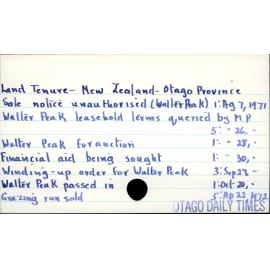 Land Tenure - New Zealand - Otago Province
Sale notice unauthorised (Walter Peak) 1: Ag 7, 1971
Walter Peak leasehold terms queried by M.P.
5: " 26, "
Walter Peak for auction 1: " 28, "
Financial aid being sought 1: " 30, "
Winding-up order for Walter Peak 3: Sep 27 "
Walter Peak passed in 1: Oct 20, "
Grazing run sold 5: Ap 22 1972
OTAGO DAILY TIMES